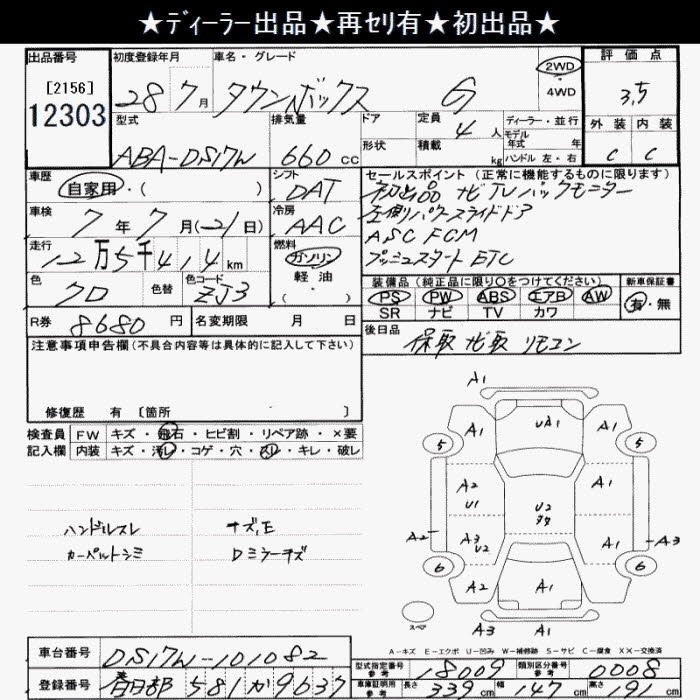 ★ディーラー出品★再セリ有★初出品★
出品番号 初度登録年月 車名・グレード 評価点
[2156] 12303
28 7月 タウンボックス G 2WD 4WD 3.5
型式 排気量 ドア 定員 ディーラー・並行 外装 内装
ABA-DS17W 660 cc 形状 4人 モデル年式 年
積載 kg ハンドル 左・右 C C
車歴 シフト セールスポイント(正常に機能するものに限ります)
自家用・( ) DAT 初出品 ナビ TV バックモニター
車検 冷房 左側パワースライドドア
7年7月(21日) AAC ASC FCM
走行 燃料 プッシュスタート ETC
12万5千414km ガソリン
色 色替 色コード 軽油 装備品(純正品に限り○をつけてください) 新車保証書
クロ ZJ3 ・( ) PS PW ABS エアB AW 有・無
SR ナビ TV カワ
R券 8680円 名変期限 月 日 後日品
保取 ナビ取 リモコン
注意事項申告欄(不具合内容等は具体的に記入して下さい)
修復歴 有 〔箇所 〕
検査員 FW キズ・飛石・ヒビ割・リペア跡・×要
記入欄 内装 キズ・汚レ・コゲ・穴・スレ・キレ・破レ
ハンドルスレ
カーペットシミ
Dミラーキズ
A1
A1 UA1 A1
5 5
A2 U1 A1
U2
A2 A3 U2 A1 A3
6 6
A2 A1 A1
スペア A3
A-キズ E-エクボ U-凹み W-補修跡 S-サビ C-腐食 XX-交換済
車台番号 DS17W-101082
登録番号 春日部 581 か 9637
型式指定番号 参考 18009 類別区分番号 参考 0008
車庫証明用 参考 長さ 339cm 幅 147cm 高さ 92cm